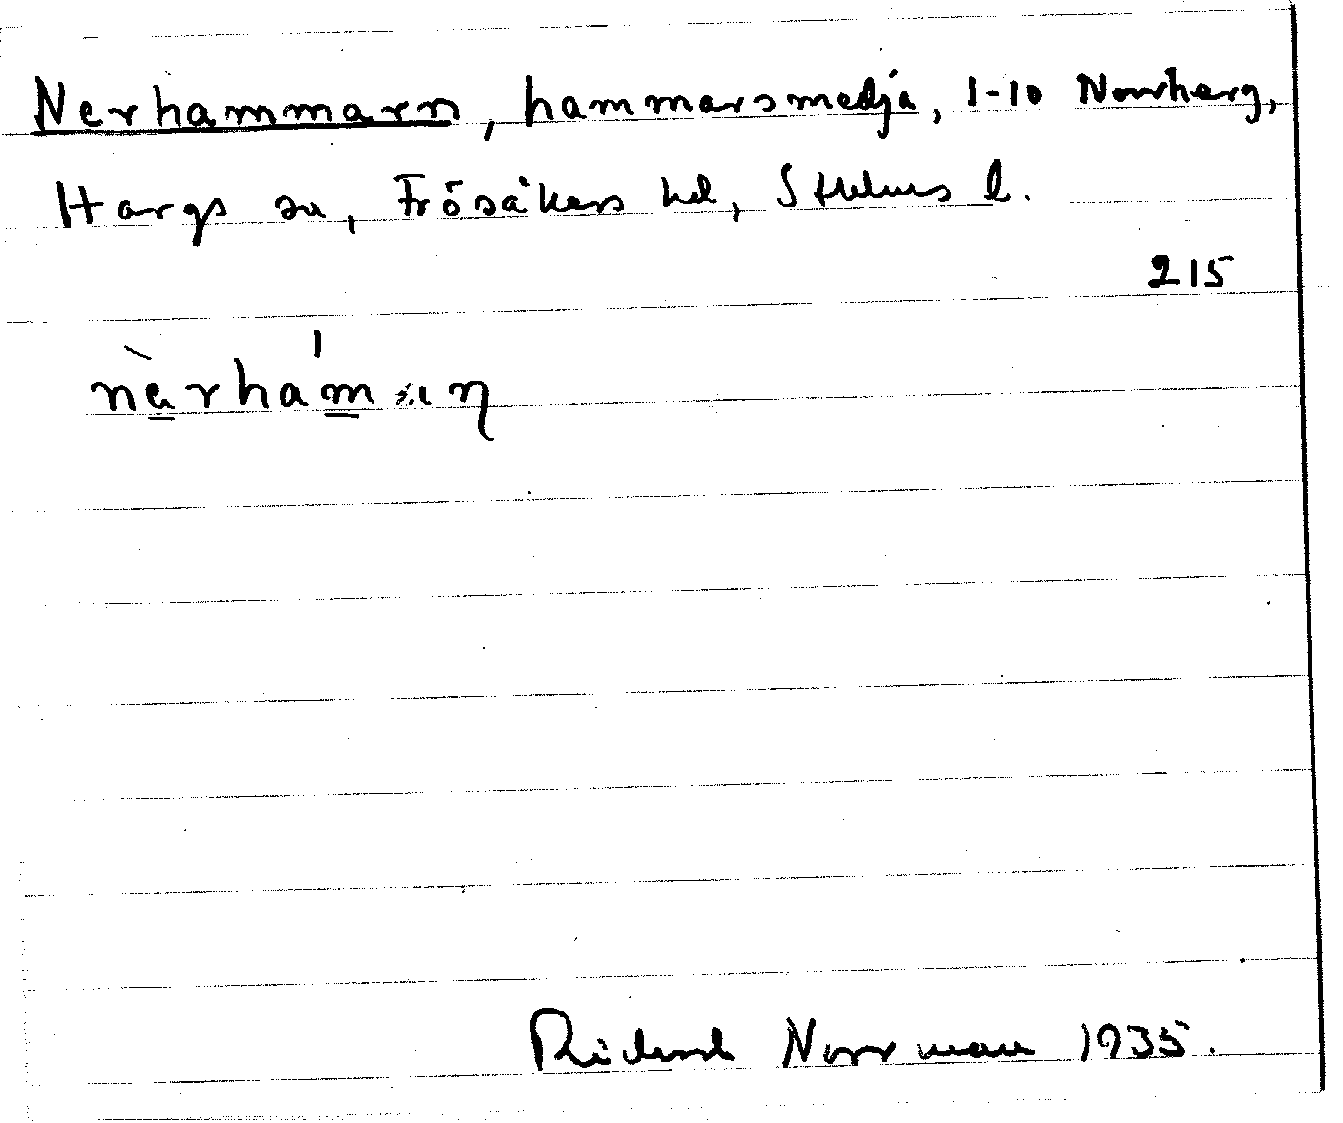 Nerhammarn, hammarsmedja, 1-10 Norrberg,
Hargs sn, Frösåkers hd, Sthlms l.
215
Rickard Norrman 1935.